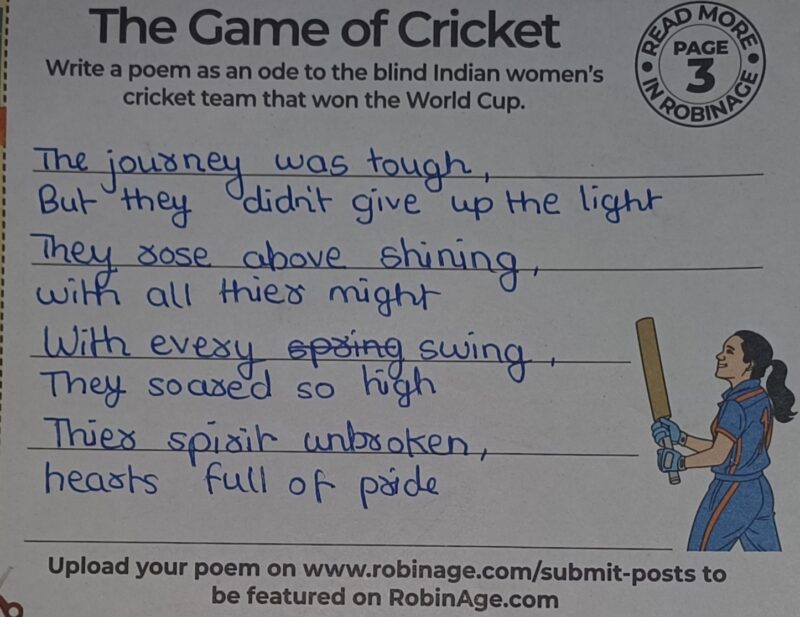 The Game of Cricket
Write a poem as an ode to the blind Indian women's
cricket team that won the World Cup.
READ MORE
PAGE
3
IN ROBINAGE
The journey was tough,
But they didn't give up the light
They rose above shining,
with all thier might
With every spring swing,
They soared so high
Thier spirit unbroken,
hearts full of pride
Upload your poem on www.robinage.com/submit-posts to
be featured on RobinAge.com